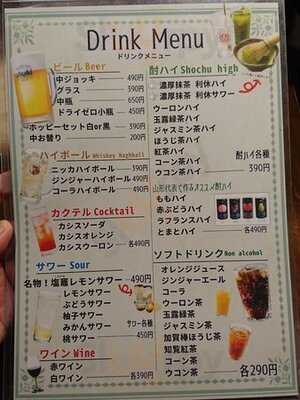 Drink Menu
ドリンクメニュー
ビール Beer
中ジョッキ 490円
グラス 390円
中瓶 650円
ドライゼロ小瓶 450円
ホッピーセット白or黒 390円
中お替り 200円
ハイボール Whiskey highball
ニッカハイボール 390円
ジンジャーハイボール 490円
コーラハイボール 490円
カクテル Cocktail
カシスソーダ
カシスオレンジ
カシスウーロン 各490円
サワー Sour
名物!塩麹レモンサワー 490円
レモンサワー
ぶどうサワー
柚子サワー
みかんサワー
桃サワー
サワー各種
450円
ワイン Wine
赤ワイン
白ワイン 各390円
酎ハイ Shochu high
濃厚抹茶 利休ハイ
濃厚抹茶 利休サワー
ウーロンハイ
玉露緑茶ハイ
ジャスミン茶ハイ
ほうじ茶ハイ
紅茶ハイ
コーン茶ハイ
ウコン茶ハイ
酎ハイ各種
390円
山形代表で作るオススメ酎ハイ
ももハイ
赤ぶどうハイ
ラフランスハイ
とまとハイ 各490円
ソフトドリンク Non alcohol
オレンジジュース
ジンジャーエール
コーラ
ウーロン茶
玉露緑茶
ジャスミン茶
加賀棒ほうじ茶
知覧紅茶
コーン茶
ウコン茶 各290円